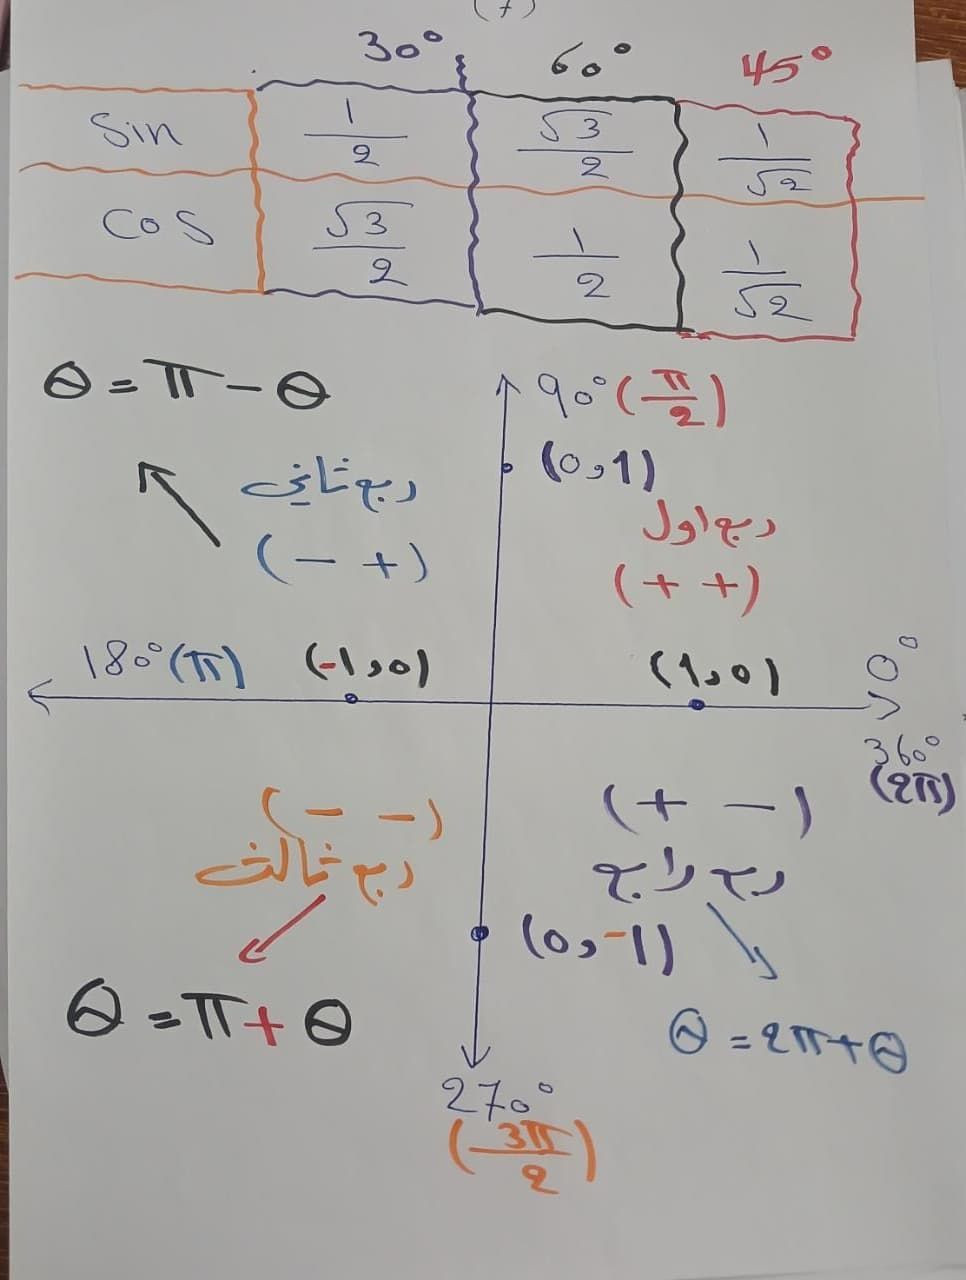 (7)
30° 60° 45°
Sin 1/2 √3/2 1/√2
Cos √3/2 1/2 1/√2
θ = π - θ
90° (π/2)
(0,1)
ربع ثاني
(- +)
ربع اول
(+ +)
180° (π)
(-1,0)
(1,0)
0°
360°
(2π)
(- -)
ربع ثالث
(+ -)
ربع رابع
(0,-1)
θ = π + θ
θ = 2π + θ
270°
(3π/2)